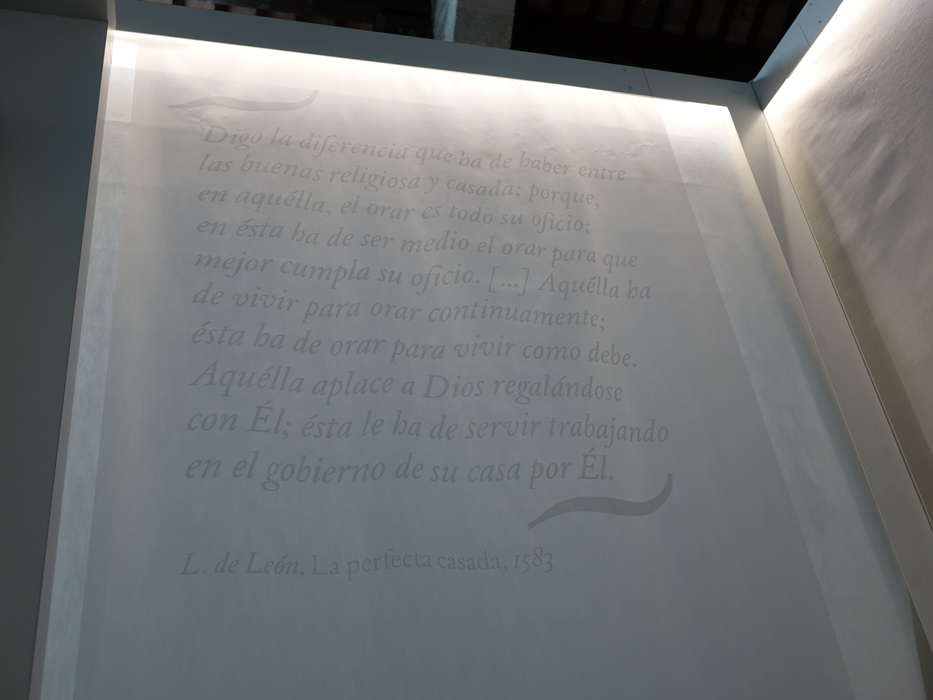 Digo la diferencia que ha de haber entre
las buenas religiosa y casada; porque,
en aquélla, el orar es todo su oficio;
en ésta ha de ser medio el orar para que
mejor cumpla su oficio. [...] Aquélla ha
de vivir para orar continuamente;
ésta ha de orar para vivir como debe.
Aquélla aplace a Dios regalándose
con Él; ésta le ha de servir trabajando
en el gobierno de su casa por Él.
L. de León, La perfecta casada, 1583